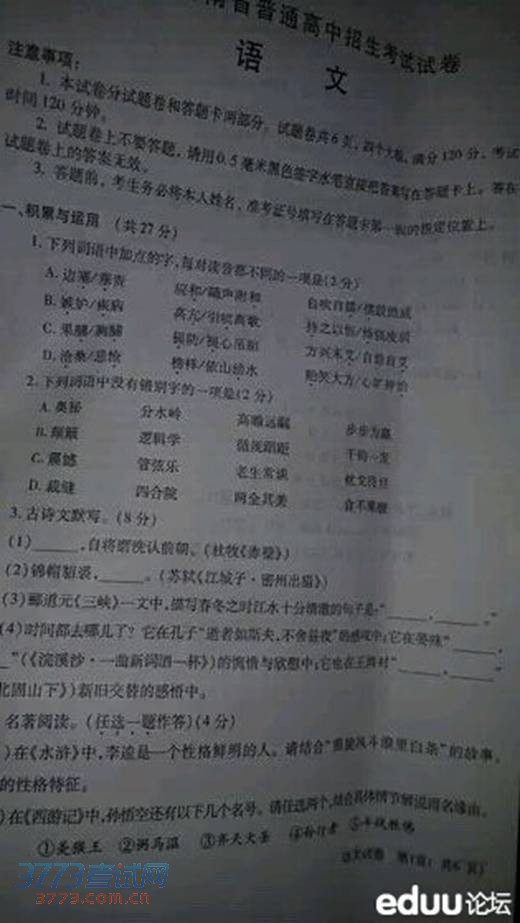 南省普通高中招生考试试卷
语 文
注意事项：
1. 本试卷分试题卷和答题卡两部分。试题卷共6页，四个大题，满分120分，考试
时间120分钟。
2. 试题卷上不要答题，请用0.5毫米黑色签字水笔直接把答案写在答题卡上。答在
试题卷上的答案无效。
3. 答题前，考生务必将本人姓名、准考证号填写在答题卡第一面的指定位置上。
一、积累与运用 (共27分)
1. 下列词语中加点的字，每对读音都不同的一项是(2分)
A. 边塞/塞责 应和/随声附和 自吹自擂/
B. 嫉妒/疾病 高亢/引吭高歌 持之以恒/恃强凌弱
C. 果脯/胸脯 提防/提心吊胆 方兴未艾/自怨自艾
D. 沧桑/悲怆 榜样/依山傍水 贻笑大方/心旷神怡
2. 下列词语中没有错别字的一项是(2分)
A. 奥秘 分水岭 高瞻远瞩 步步为赢
B. 颓 逻辑学 循规蹈距 千钧一发
C. 震撼 管弦乐 老生常谈
D. 裁缝 四合院 两全其美 食不果腹
3. 古诗文默写。(8分)
(1)______，自将磨洗认前朝。(杜牧《赤壁》)
(2)锦帽貂裘，______。(苏轼《江城子·密州出猎》)
(3)郦道元《三峡》一文中，描写春冬之时江水十分清澈的句子是“______，______。
(4)时间都去哪儿了？它在孔子“逝者如斯夫，不舍昼夜”的感叹中；它在晏殊“______，
_”(《浣溪沙·一曲新词酒一杯》)的惋惜与欣慰中；它也在王湾对“______，______
北固山下》)新旧交替的感悟中。
名著阅读。(任选一题作答)(4分)
)在《水浒》中，李逵是一个性格鲜明的人。请结合“黑旋风斗浪里白条”的故事，
的性格特征。
)在《西游记》中，孙悟空还有以下几个名号。请任选两个，结合具体情节解说得名缘由。
①美猴王 ②弼马温 ③齐天大圣 ④孙行者 ⑤斗战胜佛
语文试卷 第1页(共6页)
3773考试网
3773.com.cn
eduu论坛